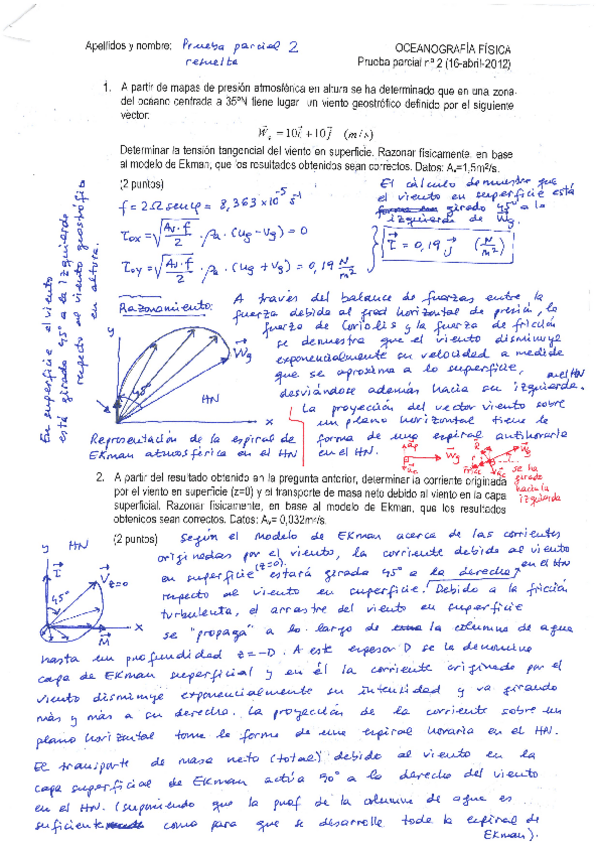 Apellidos y nombre: Prueba parcial 2
resuelta
OCEANOGRAFÍA FÍSICA
Prueba parcial nº 2 (16-abril-2012)
1. A partir de mapas de presión atmosférica en altura se ha determinado que en una zona
del océano centrada a 35ºN tiene lugar un viento geostrófico definido por el siguiente
vector:
W⃗g = 10i⃗ + 10j⃗ (m/s)
Determinar la tensión tangencial del viento en superficie. Razonar físicamente, en base
al modelo de Ekman, que los resultados obtenidos sean correctos. Datos: Av=1,5m²/s.
(2 puntos)
f = 2Ω senφ = 8,363 x 10⁻⁵ s⁻¹
τox = √(Av·f/2) · ρa · (ug - vg) = 0
τoy = √(Av·f/2) · ρa · (ug + vg) = 0,19 N/m²
El cálculo demuestra que
el viento en superficie está
girado 45º a la
izquierda de W⃗g.
τ⃗ = 0,19 j⃗ (N/m²)
En superficie el viento
está girado 45º a la izquierda
respecto al viento geostrófico
en altura.
Razonamiento:
A través del balance de fuerzas entre la
fuerza debida al grad horizontal de presión, la
fuerza de Coriolis y la fuerza de fricción
se demuestra que el viento disminuye
exponencialmente su velocidad a medida
que se aproxima a la superficie,
desviándose además hacia su izquierda.
en el HN
y
45º
W⃗g
HN
x
Representación de la espiral de
Ekman atmosférica en el HN
La proyección del vector viento sobre
un plano horizontal tiene la
forma de una espiral antihoraria
en el HN.
W⃗g
se ha
girado
hacia la
izquierda
2. A partir del resultado obtenido en la pregunta anterior, determinar la corriente originada
por el viento en superficie (z=0) y el transporte de masa neto debido al viento en la capa
superficial. Razonar físicamente, en base al modelo de Ekman, que los resultados
obtenidos sean correctos. Datos: Av= 0,032m²/s.
(2 puntos)
y HN
τ⃗
V⃗z=0
45º
x
M⃗
Según el modelo de Ekman acerca de las corrientes
originadas por el viento, la corriente debida al viento
en superficie (z=0) estará girada 45º a la derecha en el HN
respecto al viento en superficie. Debido a la fricción
turbulenta, el arrastre del viento en superficie
se "propaga" a lo largo de la columna de agua
hasta un profundidad z=-D. A este espesor D se le denomina
capa de Ekman superficial y en él la corriente originada por el
viento disminuye exponencialmente su intensidad y va girando
más y más a su derecha. La proyección de la corriente sobre un
plano horizontal toma la forma de una espiral horaria en el HN.
El transporte de masa neto (total) debido al viento en la
capa superficial de Ekman actúa 90º a la derecha del viento
en el HN. (suponiendo que la prof de la columna de agua es
suficiente como para que se desarrolle toda la espiral de
Ekman).